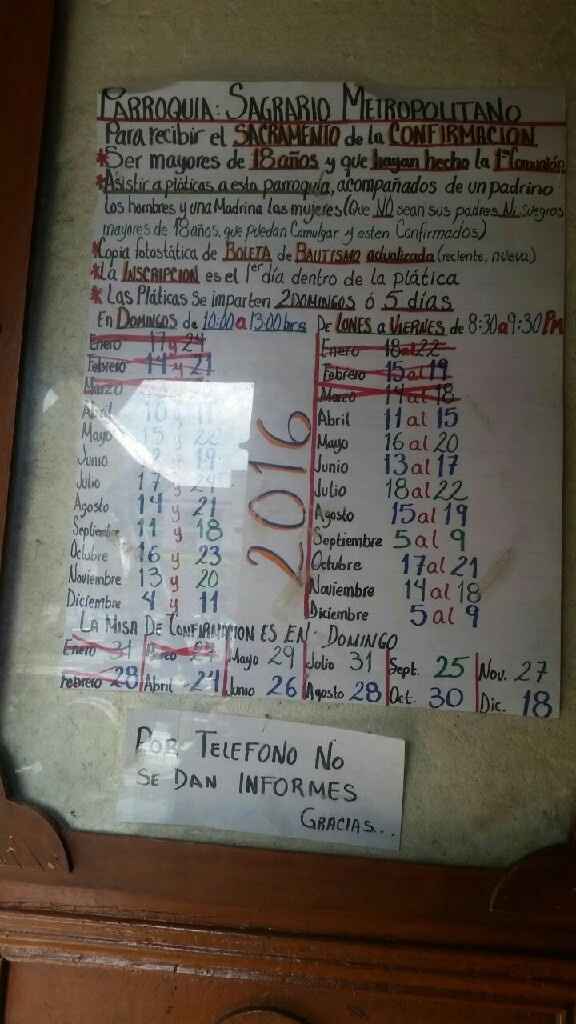 PARROQUIA: SAGRARIO METROPOLITANO
Para recibir el SACRAMENTO de la CONFIRMACION
*Ser mayores de 18 años y que hayan hecho la 1ª Comunión
*Asistir a pláticas a esta parroquia, acompañados de un padrino
los hombres y una Madrina las mujeres (Que NO sean sus padres Ni suegros
mayores de 18 años, que puedan Comulgar y esten Confirmados)
*Copia fotostática de BOLETA de BAUTISMO actualizada (reciente, nueva)
*LA INSCRIPCION es el 1er día dentro de la plática
*Las Pláticas Se imparten 2 DOMINGOS ó 5 días
EN DOMINGOS de 10:00 a 13:00 hrs
Enero 17 y 24
Febrero 14 y 21
Marzo
Abril 10 y 17
Mayo 15 y 22
Junio 12 y 19
Julio 17 y 24
Agosto 14 y 21
Septiembre 11 y 18
Octubre 16 y 23
Noviembre 13 y 20
Diciembre 4 y 11
2016
DE LUNES A VIERNES de 8:30 a 9:30 PM
Enero 18 al 22
Febrero 15 al 19
Marzo 14 al 18
Abril 11 al 15
Mayo 16 al 20
Junio 13 al 17
Julio 18 al 22
Agosto 15 al 19
Septiembre 5 al 9
Octubre 17 al 21
Noviembre 14 al 18
Diciembre 5 al 9
LA MISA DE CONFIRMACION ES EN: DOMINGO
Enero 31 27 Mayo 29 Julio 31 Sept. 25 Nov. 27
Febrero 28 Abril 24 Junio 26 Agosto 28 Oct. 30 Dic. 18
POR TELEFONO NO
SE DAN INFORMES
GRACIAS...